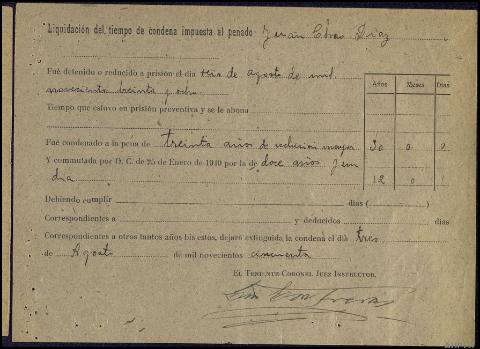 Liquidación del tiempo de condena impuesta al penado Juan Díaz
Fué detenido o reducido a prisión el día seis de agosto de mil
novecientos treinta y ocho
Años Meses Dias
Tiempo que estuvo en prisión preventiva y se le abona
Fué condenado a la pena de treinta años de reclusión mayor 30 0 0
Y commutada por O. C. de 25 de Enero de 1940 por la de doce años y un
dia 12 0 1
Debiendo cumplir días ( )
Correspondientes a y deducidos días
Correspondientes a otros tantos años bisiestos, dejará extinguida la condena el día tres
de Agosto de mil novecientos cincuenta
EL TENIENTE CORONEL JUEZ INSTRUCTOR,